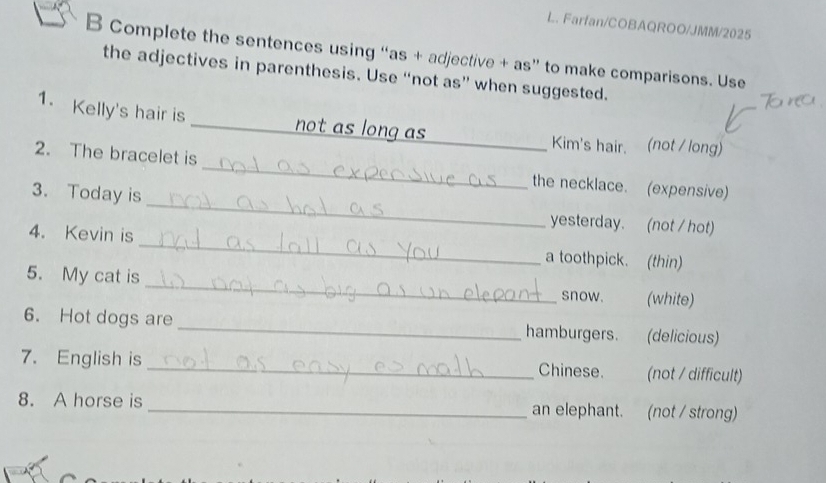 L. Farfan/COBAQROO/JMM/2025
B Complete the sentences using “as + adjective + as” to make comparisons. Use
the adjectives in parenthesis. Use “not as” when suggested.
Tarea
1. Kelly's hair is not as long as Kim's hair. (not / long)
2. The bracelet is not as expensive as the necklace. (expensive)
3. Today is not as hot as yesterday. (not / hot)
4. Kevin is not as tall as you a toothpick. (thin)
5. My cat is is not as big as un elepant snow. (white)
6. Hot dogs are hamburgers. (delicious)
7. English is not as easy es math Chinese. (not / difficult)
8. A horse is an elephant. (not / strong)